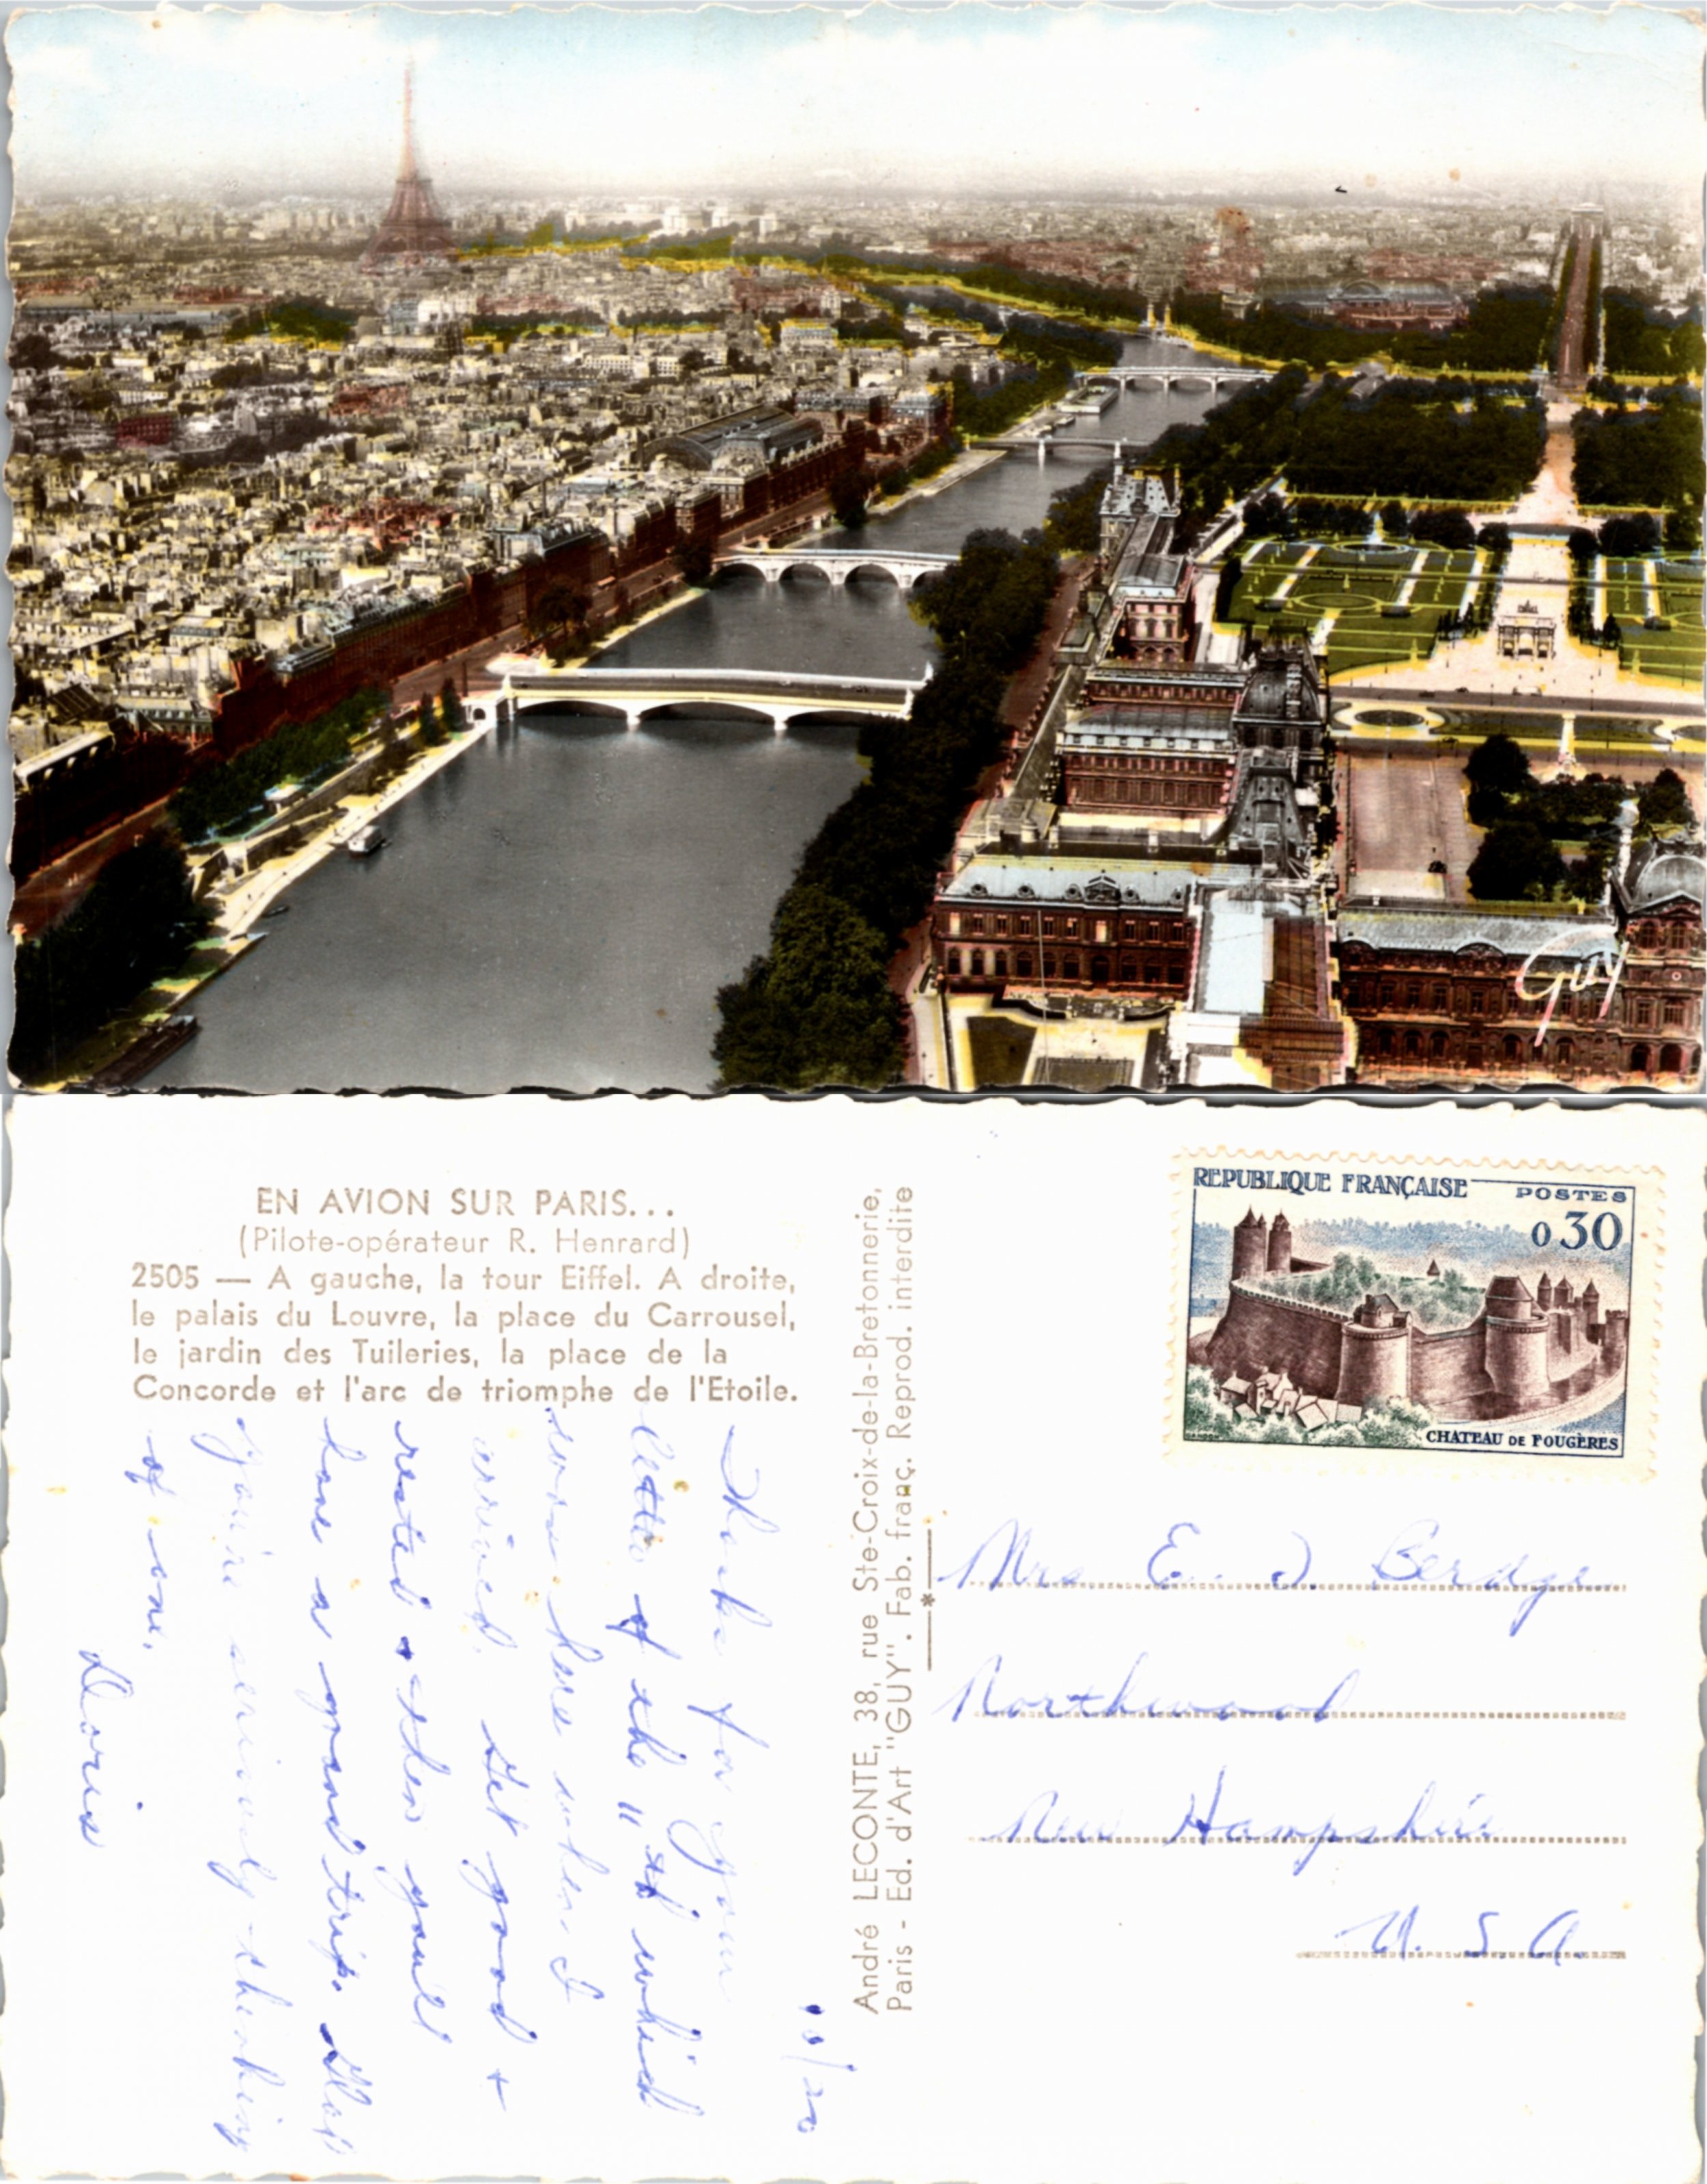 Guy
EN AVION SUR PARIS...
(Pilote-opérateur R. Henrard)
2505 — A gauche, la tour Eiffel. A droite,
le palais du Louvre, la place du Carrousel,
le jardin des Tuileries, la place de la
Concorde et l'arc de triomphe de l'Etoile.
André LECONTE, 38, rue Ste-Croix-de-la-Bretonnerie,
Paris - Ed. d'Art "GUY". Fab. franç. Reprod. interdite
*
REPUBLIQUE FRANÇAISE POSTES
0,30
CHATEAU DE FOUGÈRES
Mrs E. J. Berdge
Northwood
New Hampshire
U. S. A.
10/20
Thanks for your
letter of the 11th which
was here when I
arrived. Get good +
rested + then you'll
have a grand trip. Glad
you're seriously thinking
of one.
Doris